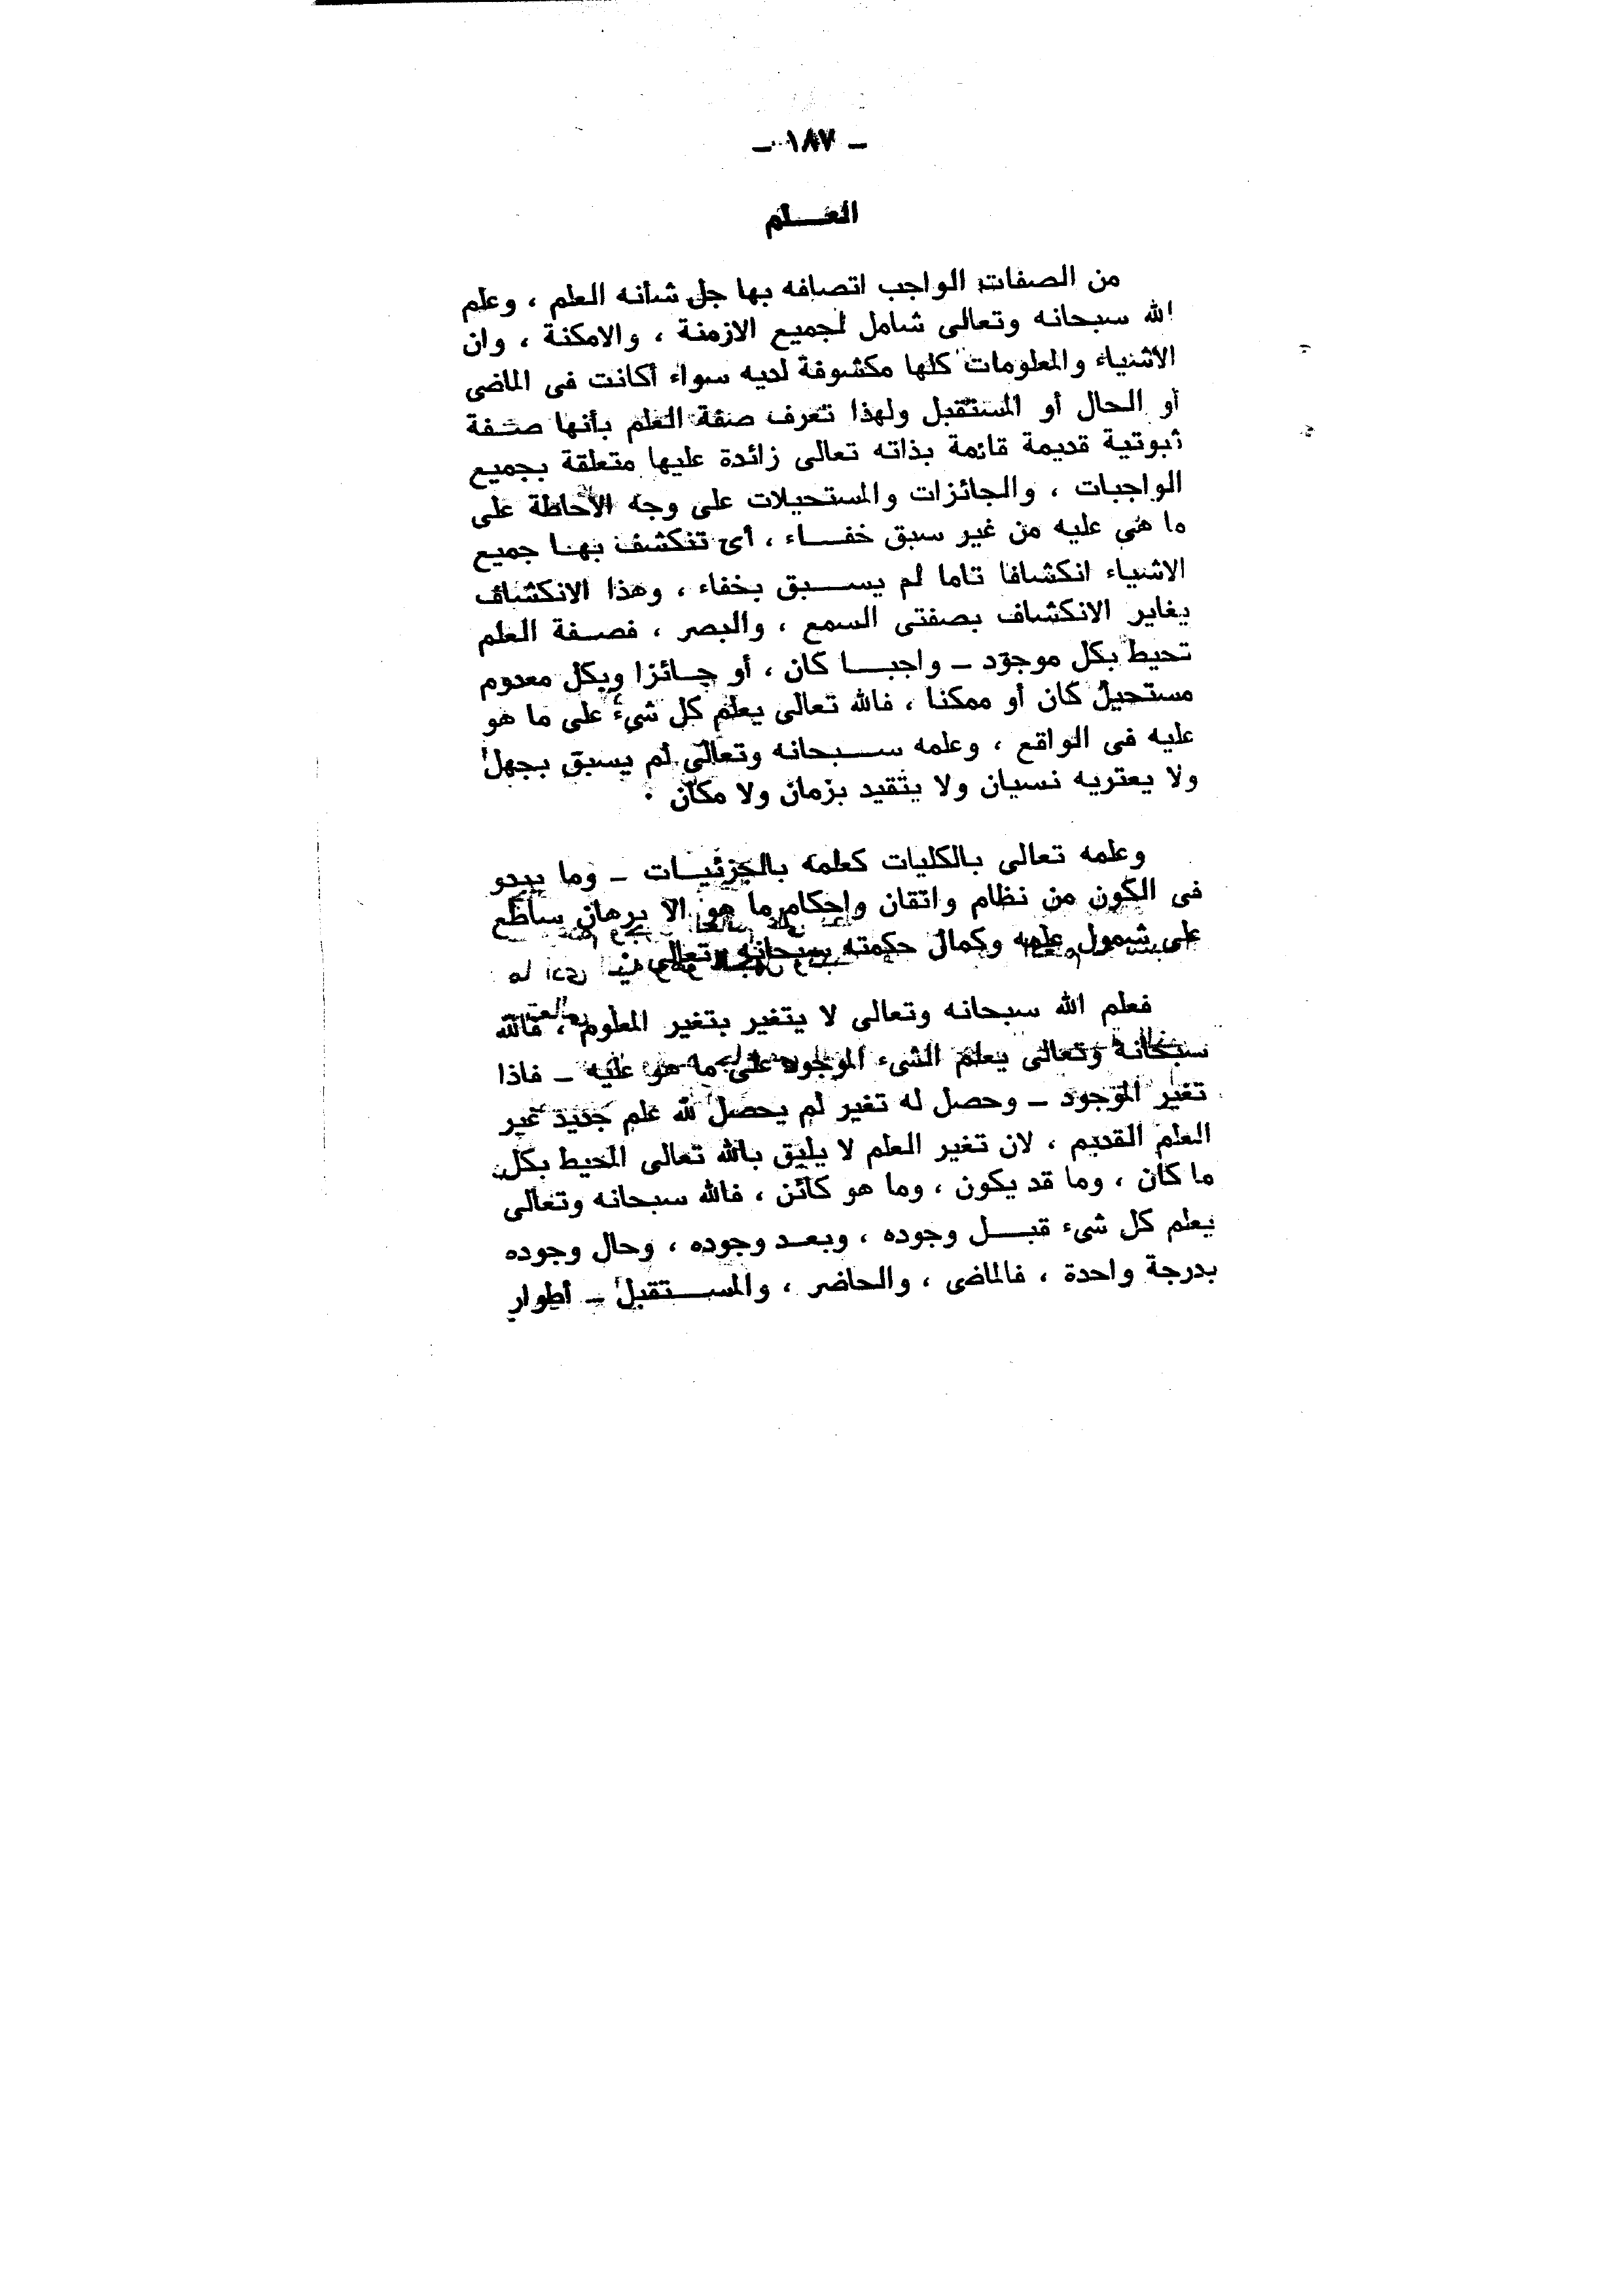 – ١٨٧ –
العلم
من الصفات الواجب اتصافه بها جل شأنه العلم ، وعلم
الله سبحانه وتعالى شامل لجميع الازمنة ، والامكنة ، وان
الأشياء والمعلومات كلها مكشوفة لديه سواء أكانت فى الماضى
أو الحال أو المستقبل ولهذا تعرف صفة العلم بأنها صفة
ثبوتية قديمة قائمة بذاته تعالى زائدة عليها متعلقة بجميع
الواجبات ، والجائزات والمستحيلات على وجه الأحاطة على
ما هي عليه من غير سبق خفاء ، أى تنكشف بها جميع
الاشياء انكشافا تاما لم يسبق بخفاء ، وهذا الانكشاف
يغاير الانكشاف بصفتى السمع ، والبصر ، فصفة العلم
تحيط بكل موجود – واجبا كان ، أو جائزا وبكل معدوم
مستحيل كان أو ممكنا ، فالله تعالى يعلم كل شيء على ما هو
عليه فى الواقع ، وعلمه سبحانه وتعالى لم يسبق بجهل
ولا يعتريه نسيان ولا يتقيد بزمان ولا مكان ٠
وعلمه تعالى بالكليات كعلمه بالجزئيات – وما يبدو
فى الكون من نظام واتقان وإحكام ما هو الا برهان ساطع
على شمول علمه وكمال حكمته سبحانه وتعالى ٠
فعلم الله سبحانه وتعالى لا يتغير بتغير المعلوم ، فالله
سبحانه وتعالى يعلم الشىء الموجود على ما هو عليه – فاذا
تغير الموجود – وحصل له تغير لم يحصل لله علم جديد غير
العلم القديم ، لان تغير العلم لا يليق بالله تعالى المحيط بكل
ما كان ، وما قد يكون ، وما هو كائن ، فالله سبحانه وتعالى
يعلم كل شىء قبل وجوده ، وبعد وجوده ، وحال وجوده
بدرجة واحدة ، فالماضى ، والحاضر ، والمستقبل – أطوار